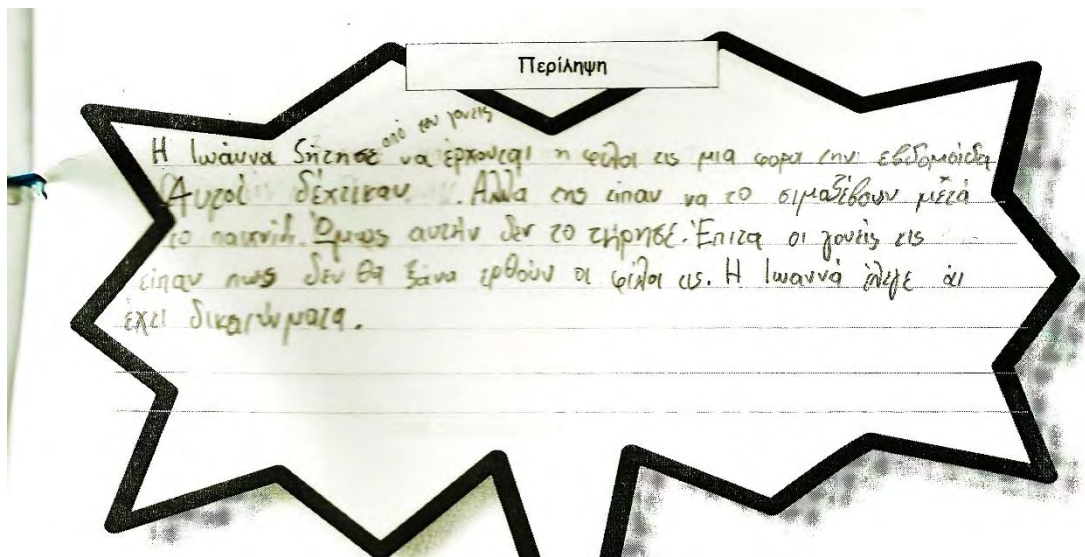 Περίληψη
από του γονείς
Η Ιωάννα ζήτησε να έρχουνται η φίλοι τις μια φορα την εβδομάιδα
Αυτοί δέχτικαν. Αλλα της είπαν να το σιμαζέβουν μέτα
το παιχνίδι. Όμως αυτήν δεν το τήρησε. Έπιτα οι γονείς τις
είπαν πως δεν θα ξάνα ερθούν οι φίλοι τις. Η Ιωαννά έλεγε ότι
έχει δικαιώματα.